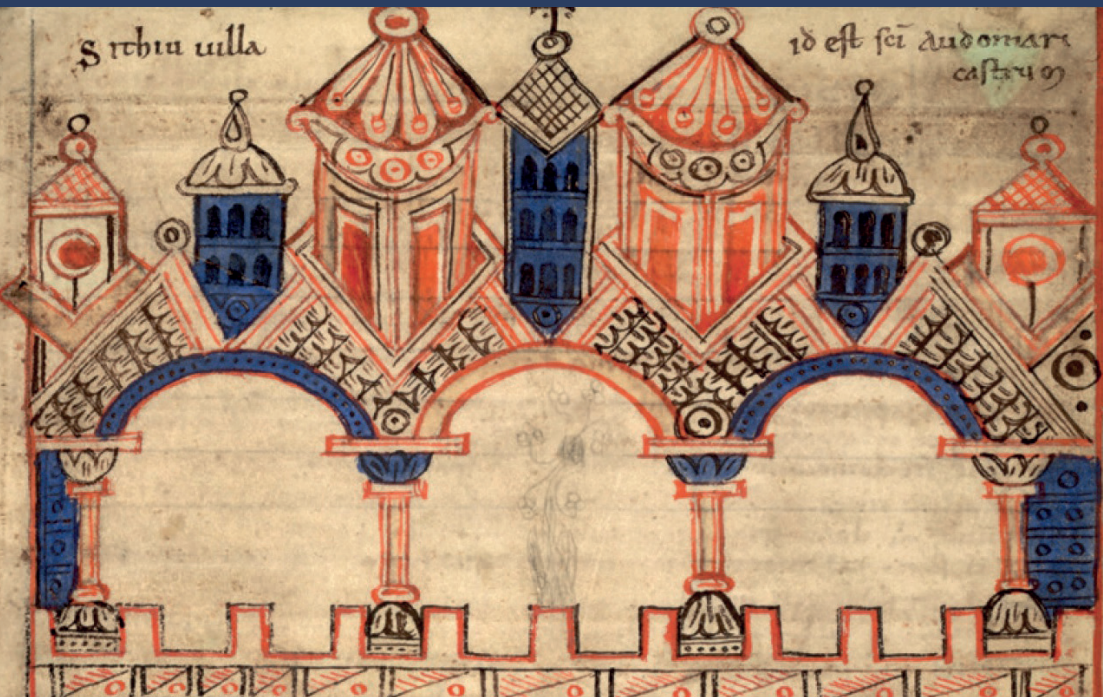 Sithiu uilla
id est sci Audomari
castrum